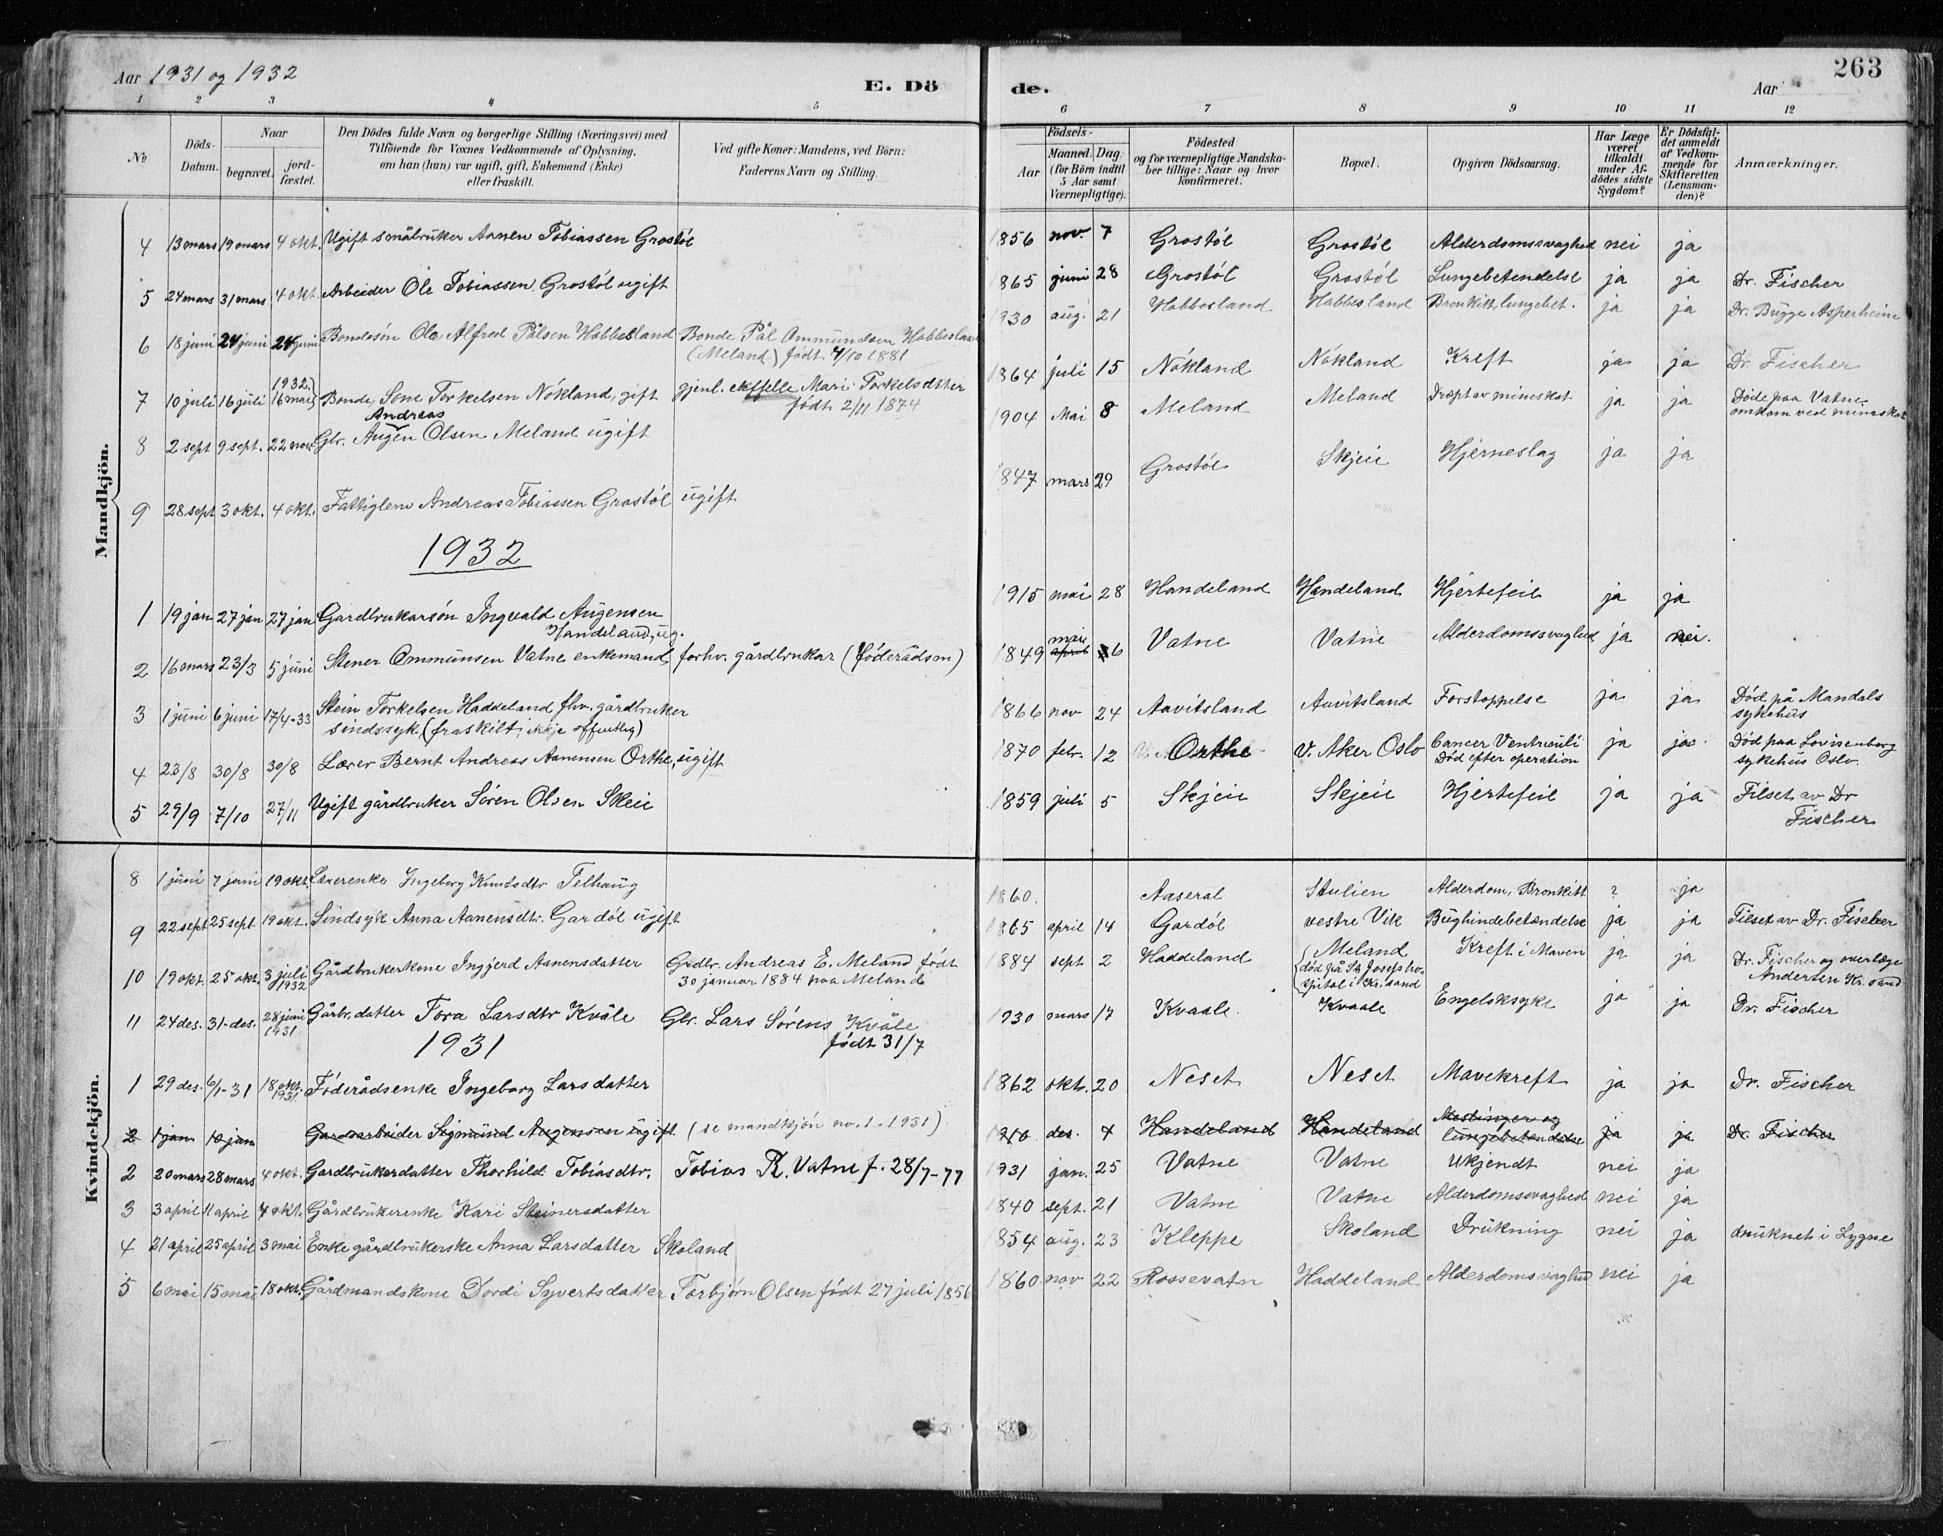 Aar 1931 og 1932
E. Dö
de.
Aar
263
1 2 3 4 5 6 7 8 9 10 11 12
No
Döds-Datum.
Naar
begravet.
jord-fæstet.
Den Dödes fulde Navn og borgerlige Stilling (Næringsvei) med
Tilföiende for Voxnes Vedkommende af Oplysning,
om han (hun) var ugift, gift, Enkemand (Enke)
eller fraskilt.
Ved gifte Koner: Mandens, ved Börn:
Faderens Navn og Stilling.
Födsels-
Aar
Maaned. Dag.
(for Börn indtil
5 Aar samt
Værnepligtige).
Födested
og for værnepligtige Mandska-
ber tillige: Naar og hvor
konfirmeret.
Bopæl.
Opgiven Dödsaarsag.
Har Læge
været
tilkaldt
under Af-
dödes sidste
Sygdom?
Er Dödsfal-
det anmeldt
af Vedkom-
mende for
Skifteretten
(Lensman-
den)?
Anmærkninger.
Mandkjön.
4 13 mars 19 mars 4 okt. Ugift småbruker Aanen Tobiassen Grostöl 1856 nov. 7 Grostöl Grostöl Alderdomssvaghed nei ja
5 24 mars 31 mars 4 okt Arbeider Ole Tobiassen Grostöl ugift 1865 juni 28 Grostöl Grostöl Lungebetendelse ja ja Dr. Fischer
6 18 juni 24 juni 24 juni Bondesön Ole Alfred Pålsen Habbesland Bonde Pål Ommundsen Habbesland 1930 aug. 21 Habbesland Habbesland Bronkitt, lungebet. ja ja Dr. Bugge Asperheim
(Meland) født 4/10 1881
7 10 juli 16 juli 1932 16 mai Bonde, Sone Torkelsen Nökland, gift gjenl. ektfelle Mari Torkelsdtter 1864 juli 15 Nökland Nökland Kreft ja ja Dr. Fischer
født 2/11 1874
Andreas
8 2 sept 9 sept. 22 nov Gbr. Augen Olsen Meland ugift 1904 Mai 8 Meland Meland Dræpt av mineskot ja ja Døde paa Vatne
omkom ved mineskot
9 28 sept 3 okt. 4 okt. Fattiglem Andreas Tobiassen Grostöl ugift 1847 mars 29 Grostöl Skjeie Hjerneslag ja ja
1932
1 19 jan 27 jan 27 jan Gardbrukarsön Ingvald Augensen 1915 mai 28 Handeland Handeland Hjertefeil ja ja
Handeland, ug.
2 16 mars 23/3 5 juni Stener Ommunsen Vatne enkemand, forhv. gårdbrukar (föderådsm) 1849 mai 6 Vatne Vatne Alderdomssvaghed ja nei.
3 1 juni 6 juni 17/4-33 Stein Torkelsen Haddeland fhv. gårdbruker 1866 nov 24 Aavitsland Aavitsland Forstoppelse ja ja Død på Mandals
sindssyk (fraskilt, ikkje offentlig) sykehus
4 23/8 30/8 30/8 Lærer Bernt Andreas Aanensen Orthe, ugift 1870 febr. 12 Orthe V. Aker Oslo Cancer Ventriculi ja ja Død paa Lovisenberg
Død efter operation sykehus Oslo.
5 29/9 7/10 27/11 Ugift gårdbruker Sören Olsen Skeie 1859 juli 5 Skjeie Skjeie Hjertefeil ja ja Tilset av Dr
Fischer
Kvindekjön.
8 1 juni 7 juni 19 okt. Lærerenke Ingeborg Knutsdtr Telhaug 1860. Aaseral Stulien Alderdom, Bronkitt ? ja
9 22 sept 25 sept 19 okt. Sindsyk Anna Aanensdtr. Gardöl ugift 1865 april 14 Gardöl vestre Vik Bughindebetændelse ja ja Tilset av Dr. Fischer
10 19 okt. 25 okt. 3 juli 1932 Gårdbrukerkone Ingjerd Aanensdatter Grdbr. Andreas E. Meland født 1884 sept 2 Haddeland Meland Kreft i Maven ja ja Dr. Fischer og overlæge
30 januar 1884 paa Meland død på St. Josephs ho-
spital i Kr.sand Andersen Kr. sand
11 24 des. 31 des. 28 juni 1931 Gårbr. datter Tora Larsdtr Kvåle Gbr. Lars Sörens Kvåle 1930 mars 17 Kvaale Kvaale Engelsksyke ja ja Dr. Fischer
født 31/7
1931
1 29 des. 6/1-31 18 okt. 1931 Föderådsenke Ingeborg Larsdatter 1862 okt. 20 Neset Neset Mavekreft ja ja Dr. Fischer
2 1 jan 10 jan Gardsarbeider Sigmund Augensen ugift (se mandkjön nr. 1 - 1931) 1910 des. 4 Handeland Handeland Meslinger og
lungebetendelse ja ja Dr. Fischer
2 20 mars 28 mars 4 okt. Gardbrukerdatter Thorhild Tobiasdtr. Tobias R. Vatne f. 28/7-77 1931 jan. 25 Vatne Vatne Ukjendt nei ja
3 3 april 11 april 4 okt. Gårdbrukerenke Kari Steinersdatter 1840 sept. 21 Vatne Vatne Alderdomssvaghed nei ja
4 21 april 25 april 3 mai Enke gårdbrukerske Anna Larsdatter Skoland 1854 aug. 23 Kleppe Skoland Drukning nei ja druknet i Lygne
5 6 mai 15 mai 18 okt. Gårdmandskone Dordi Syvertsdatter Torbjørn Olsen født 27 juli 1856 1860 nov 22 Rossevatn Haddeland Alderdomssvaghed nei ja